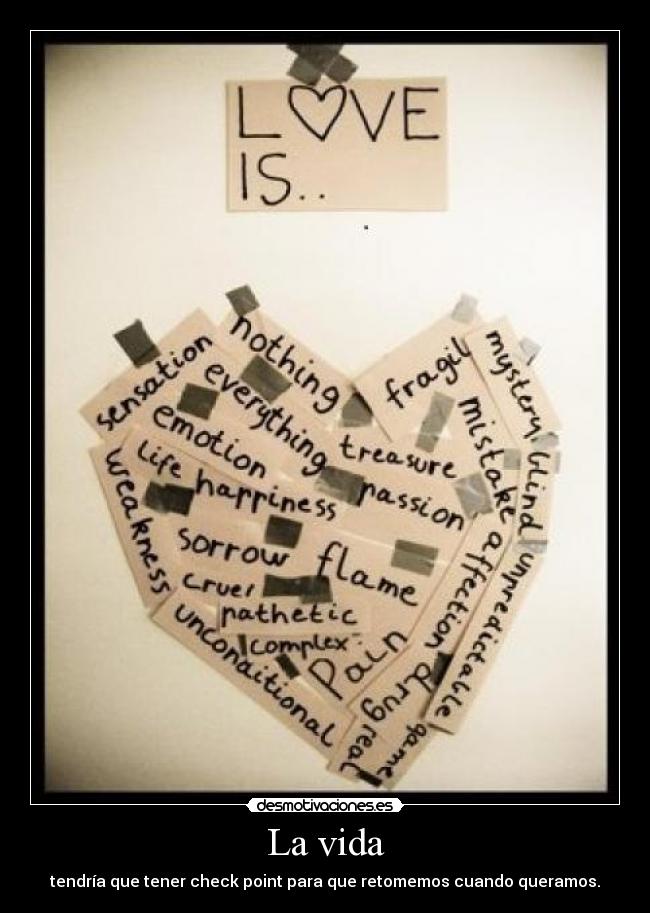 LOVE
IS..
nothing
sensation
everything
fragil
mystery
emotion
treasure
mistake
blind
life
happiness
passion
weakness
sorrow
flame
affection
unpredictable
cruel
pathetic
complex
pain
unconditional
drug
real
game
desmotivaciones.es
La vida
tendría que tener check point para que retomemos cuando queramos.